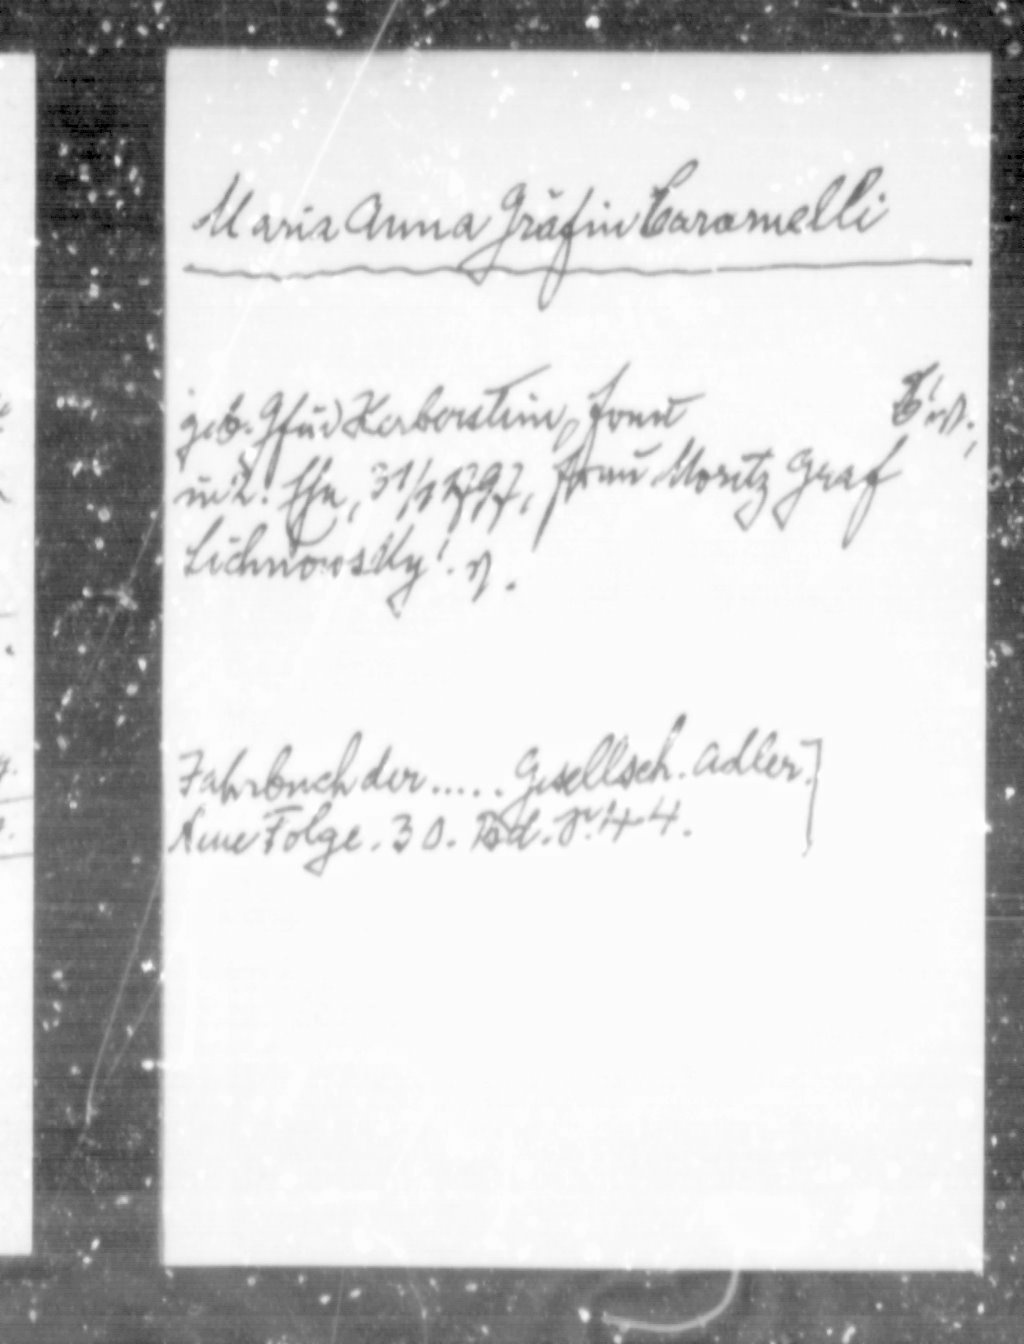 Maria Anna Gräfin Caramelli
geb. Gfin Herberstein,
in 2. Ehe, 31/1 1797, Moritz Graf
Lichnowsky!
Jahrbuch der ..... Gesellsch. Adler.]
Neue Folge. 3 0. Bd. 44.